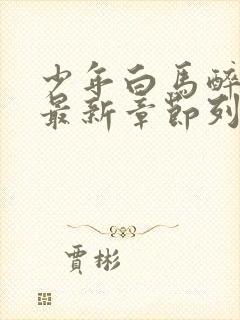 少年白馬醉
最新章節列
賈彬